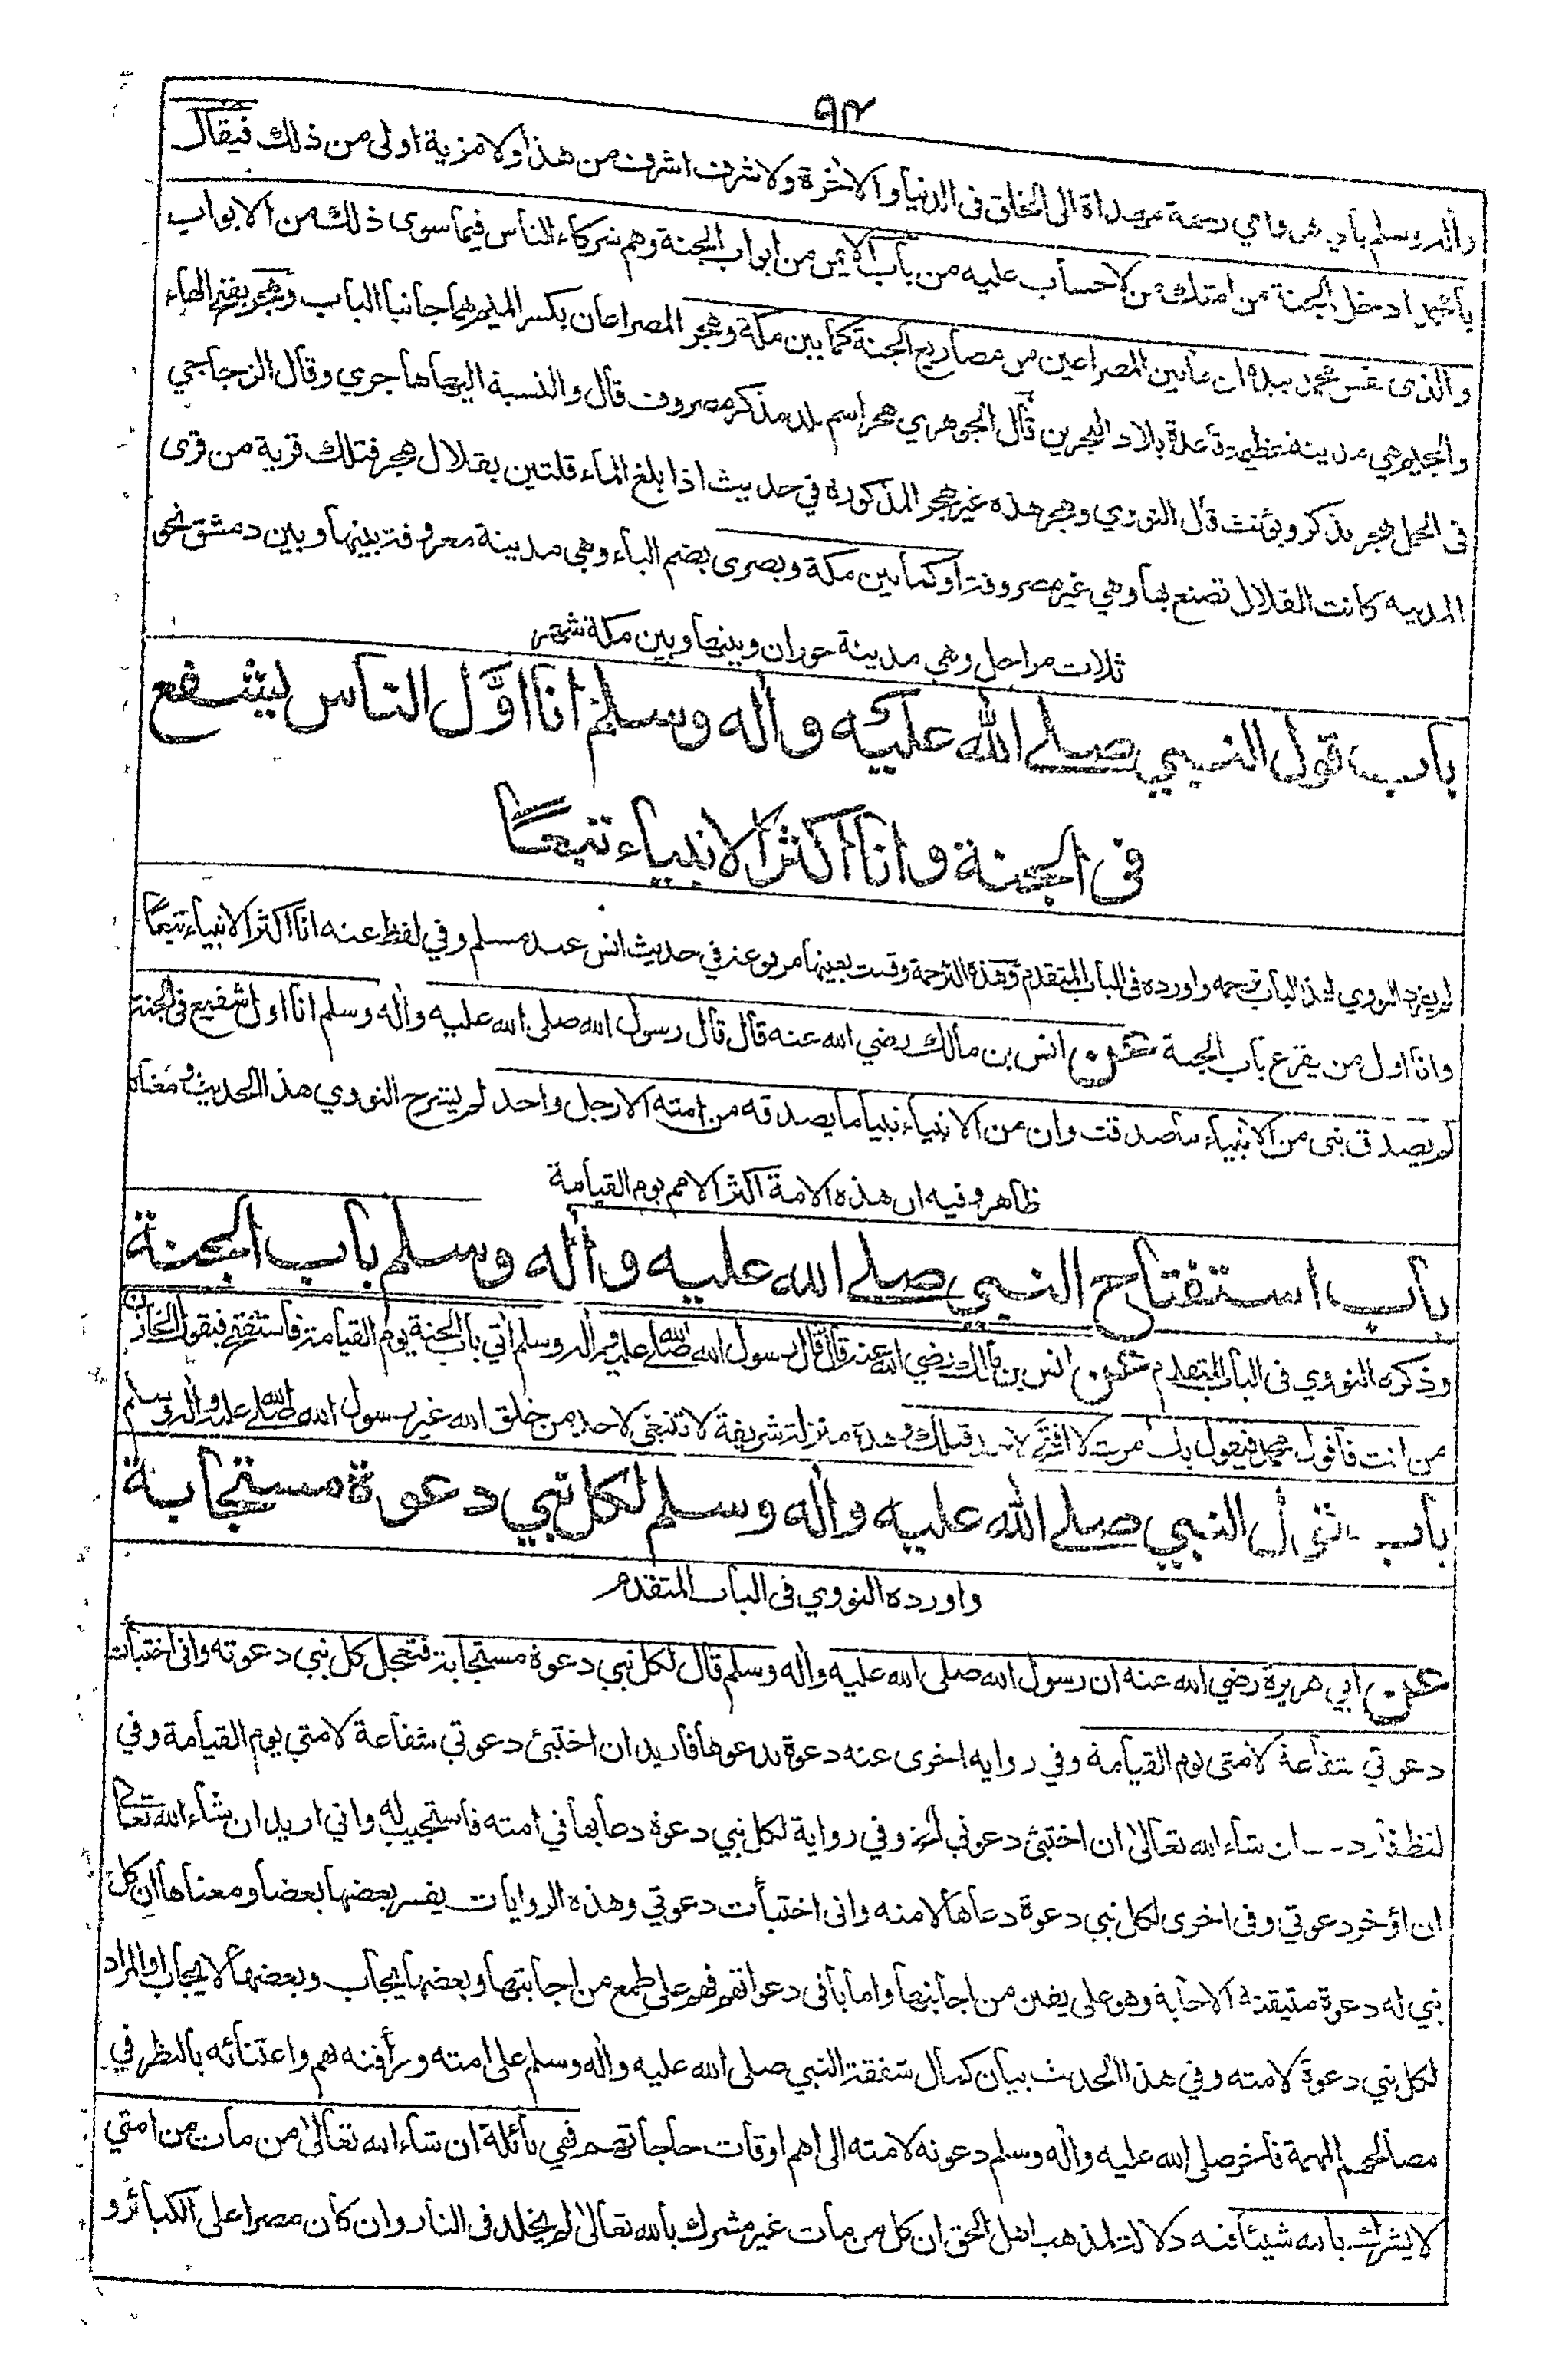 ٩٢
وأله وسلم بأبي هو وامي رحمة مهداة الى الخلق فى الدنيا والاخرة ولا شرف اشرف من هذا ولا مزية اولى من ذلك فيقال
يا محمد ادخل الجنة من امتك من لا حساب عليه من باب الايمن من ابواب الجنة وهم شركاء الناس فيما سوى ذلك من الابواب
والذى نفس محمد بيده ان ما بين المصراعين من مصاريع الجنة كما بين مكة وهجر المصراعان بكسر الميم هما جانبا الباب وهجر بفتح الهاء
والجيم هي مدينة عظيمة قاعدة بلاد البحرين قال الجوهري هجر اسم بلد مذكر مصروف قال والنسبة اليها هاجري وقال الزجاجي
فى الجمل هجر يذكر ويؤنث قال النووي وهجر هذه غير هجر المذكورة في حديث اذا بلغ الماء قلتين بقلال هجر فتلك قرية من قرى
المدينه كانت القلال تصنع بها وهي غير مصروفة او كما بين مكة وبصرى بضم الباء وهي مدينة معروفة بينها وبين دمشق نحو
ثلاث مراحل وهي مدينة حوران وبينها وبين مكة شهر
باب قول النبي صلے الله عليه وأله وسلم انا اوّل الناس يشفع
فى الجنة وانا اكثر الانبياء تبعًا
لم يفرد النووي لهذ الباب ترجمه واورده فى الباب المتقدم وهذه الترجمة وقعت بعينها مرفوعة في حديث انس عند مسلم وفي لفظ عنه انا اكثر الانبياء تبعًا
وانا اول من يقرع باب الجنة عن انس بن مالك رضي الله عنه قال قال رسول الله صلى الله عليه وأله وسلم انا اول شفيع فى الجنة
لم يصدق نبى من الانبياء ما صدقت وان من الانبياء نبيا ما يصدقه من امته الا رجل واحد لم يشرح النووي هذا الحديث ومعناه
ظاهر وفيه ان هذه الامة اكثر الامم يوم القيامة
باب استفتاح النبي صلے الله عليه وأله وسلم باب الجنة
وذكره النووي فى الباب المتقدم عن انس بن مالك رضي الله عنه قال قال رسول الله صلے الله عليه وأله وسلم أتي باب الجنة يوم القيامة فاستفتح فيقول الخازن
من انت فأقول محمد فيقول بك امرت لا افتح لاحد قبلك وهذه منزلة شريفة لا تنبغي لاحد من خلق الله غير رسول الله صلے الله عليه وأله وسلم
باب قول النبي صلے الله عليه وأله وسلم لكل نبي دعوة مستجابة
واورده النووي فى الباب المتقدم
عن ابي هريرة رضي الله عنه ان رسول الله صلى الله عليه وأله وسلم قال لكل نبي دعوة مستجابة فتعجل كل نبي دعوته وانى اختبأت
دعوتي شفاعة لامتى يوم القيامة وفي رواية اخرى عنه دعوة يدعوها فأريد ان اختبئ دعوتي شفاعة لامتي يوم القيامة وفي
لفظ فأردت ان شاء الله تعالى ان اختبئ دعوتي الخ وفي رواية لكل نبي دعوة دعا بها في امته فاستجيب له واني اريد ان شاء الله تعالى
ان اؤخر دعوتي وفى اخرى لكل نبي دعوة دعاها لامته وانى اختبأت دعوتي وهذه الروايات يفسر بعضها بعضا ومعناها ان كل
نبي له دعوة متيقنة الاجابة وهو على يقين من اجابتها واما باقى دعواتهم فهم على طمع من اجابتها وبعضها يجاب وبعضها لا يجاب او المراد
لكل نبي دعوة لامته وفي هذا الحديث بيان كمال شفقة النبي صلى الله عليه وأله وسلم على امته ورأفته بهم واعتنائه بالنظر في
مصالحهم المهمة فأخر صلى الله عليه وأله وسلم دعوته لامته الى اهم اوقات حاجاتهم فهي نائلة ان شاء الله تعالى من مات من امتي
لا يشرك بالله شيئا فيه دلالة لمذهب اهل الحق ان كل من مات غير مشرك بالله تعالى لم يخلد فى النار وان كان مصرا على الكبائر و